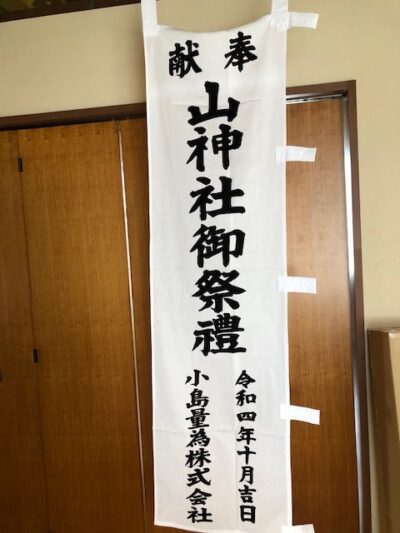 奉献
山神社御祭禮
令和四年十月吉日
小島量為株式会社